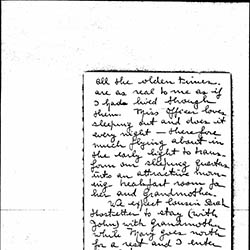 all the olden times
are as real to me as if
I had lived through
them. Miss Officer loves
sleeping out and does it
every night — therefore
much flying about in
the early light to trans
form our sleeping quarters
into an attractive morn
ing breakfast room for
her and Grandmother.
We expect Cousin Sarah
Hostetter to stay (with
John) with Grandmoth
while Mary goes north
for a rest and I enter